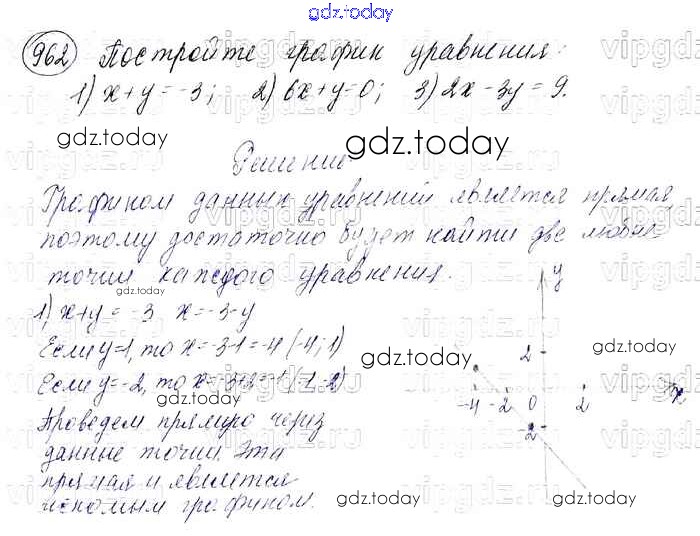 gdz.today
962 Постройте график уравнения:
1) x+y=-3; 2) 6x+y=0; 3) 2x-3y=9.
gdz.today
gdz.today
Решение
Графиком данных уравнений является прямая
поэтому достаточно будет найти две любые
точки каждого уравнения.
gdz.today
1) x+y=-3 x=-3-y
Если y=1, то x=-3-1=-4 (-4;1)
gdz.today
gdz.today
Если y=-2, то x=-3+2=-1 (-1;-2)
gdz.today
Проведем прямую через
данные точки. Эта
прямая и является
искомым графиком.
gdz.today
gdz.today
y
2
-4 -2 0 2 x
-2
vipgdz.ru